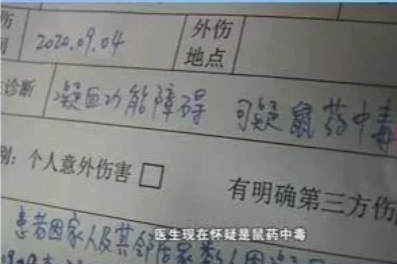 伤
间 2020.09.04 外伤
地点
诊断 凝血功能障碍 可疑鼠药中毒
别：个人意外伤害 □ 有明确第三方伤
医生现在怀疑是鼠药中毒
患者因家人及其邻居家数人因